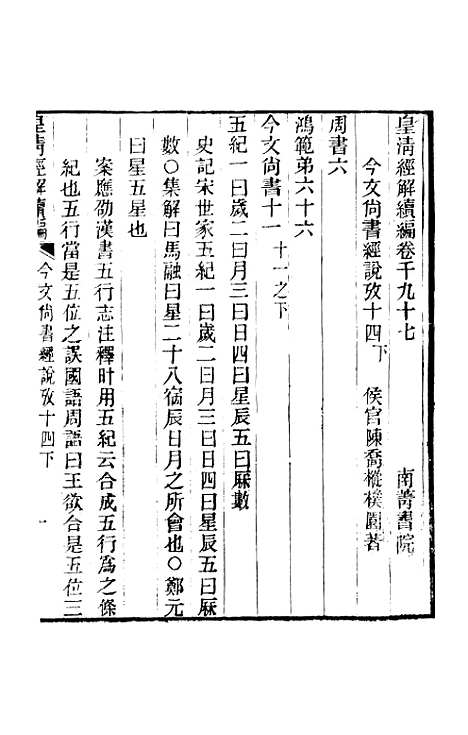 皇淸經解續編卷千九十七　南菁書院
今文尙書經說攷十四下　侯官陳喬樅樸園著
周書六
鴻範弟六十六
今文尙書十一　十一之下
五紀一曰歲二曰月三曰日四曰星辰五曰厤數
史記宋世家五紀一曰歲二曰月三曰日四曰星辰五曰厤
數〇集解曰馬融曰星二十八宿辰日月之所會也〇鄭元
曰星五星也
案應劭漢書五行志注釋旪用五紀云合成五行爲之條
紀也五行當是五位之誤國語周語曰王欲合是五位三
皇淸經解續編　今文尙書經說攷十四下　一